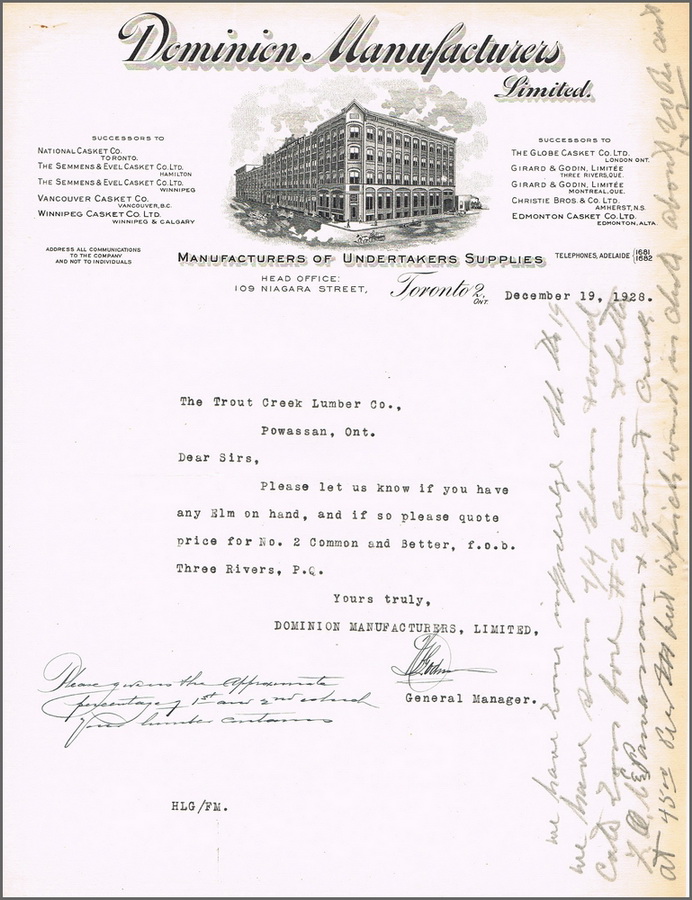 Dominion Manufacturers
Limited.
SUCCESSORS TO
NATIONAL CASKET CO.
TORONTO.
THE SEMMENS & EVEL CASKET CO. LTD.
HAMILTON
THE SEMMENS & EVEL CASKET CO. LTD.
WINNIPEG
VANCOUVER CASKET CO.
VANCOUVER, B.C.
WINNIPEG CASKET CO. LTD.
WINNIPEG & CALGARY
SUCCESSORS TO
THE GLOBE CASKET CO. LTD.
LONDON ONT.
GIRARD & GODIN, LIMITÉE
THREE RIVERS, QUE.
GIRARD & GODIN, LIMITÉE
MONTREAL, QUE.
CHRISTIE BROS. & CO. LTD.
AMHERST, N.S.
EDMONTON CASKET CO. LTD.
EDMONTON, ALTA.
ADDRESS ALL COMMUNICATIONS
TO THE COMPANY
AND NOT TO INDIVIDUALS
MANUFACTURERS OF UNDERTAKERS SUPPLIES
TELEPHONES, ADELAIDE 1681
1682
HEAD OFFICE:
109 NIAGARA STREET,
Toronto 2.
ONT.
December 19, 1928.
The Trout Creek Lumber Co.,
Powassan, Ont.
Dear Sirs,
Please let us know if you have
any Elm on hand, and if so please quote
price for No. 2 Common and Better, f.o.b.
Three Rivers, P.Q.
Yours truly,
DOMINION MANUFACTURERS, LIMITED,
General Manager.
Please give us the approximate
percentage of 1st and 2nd which
your lumber contains
HLG/FM.
we have your of the 19
we have some 4/4 Elm
# 2 &
Powassan & Trout Creek
at 45 per which would about 20 Per cent